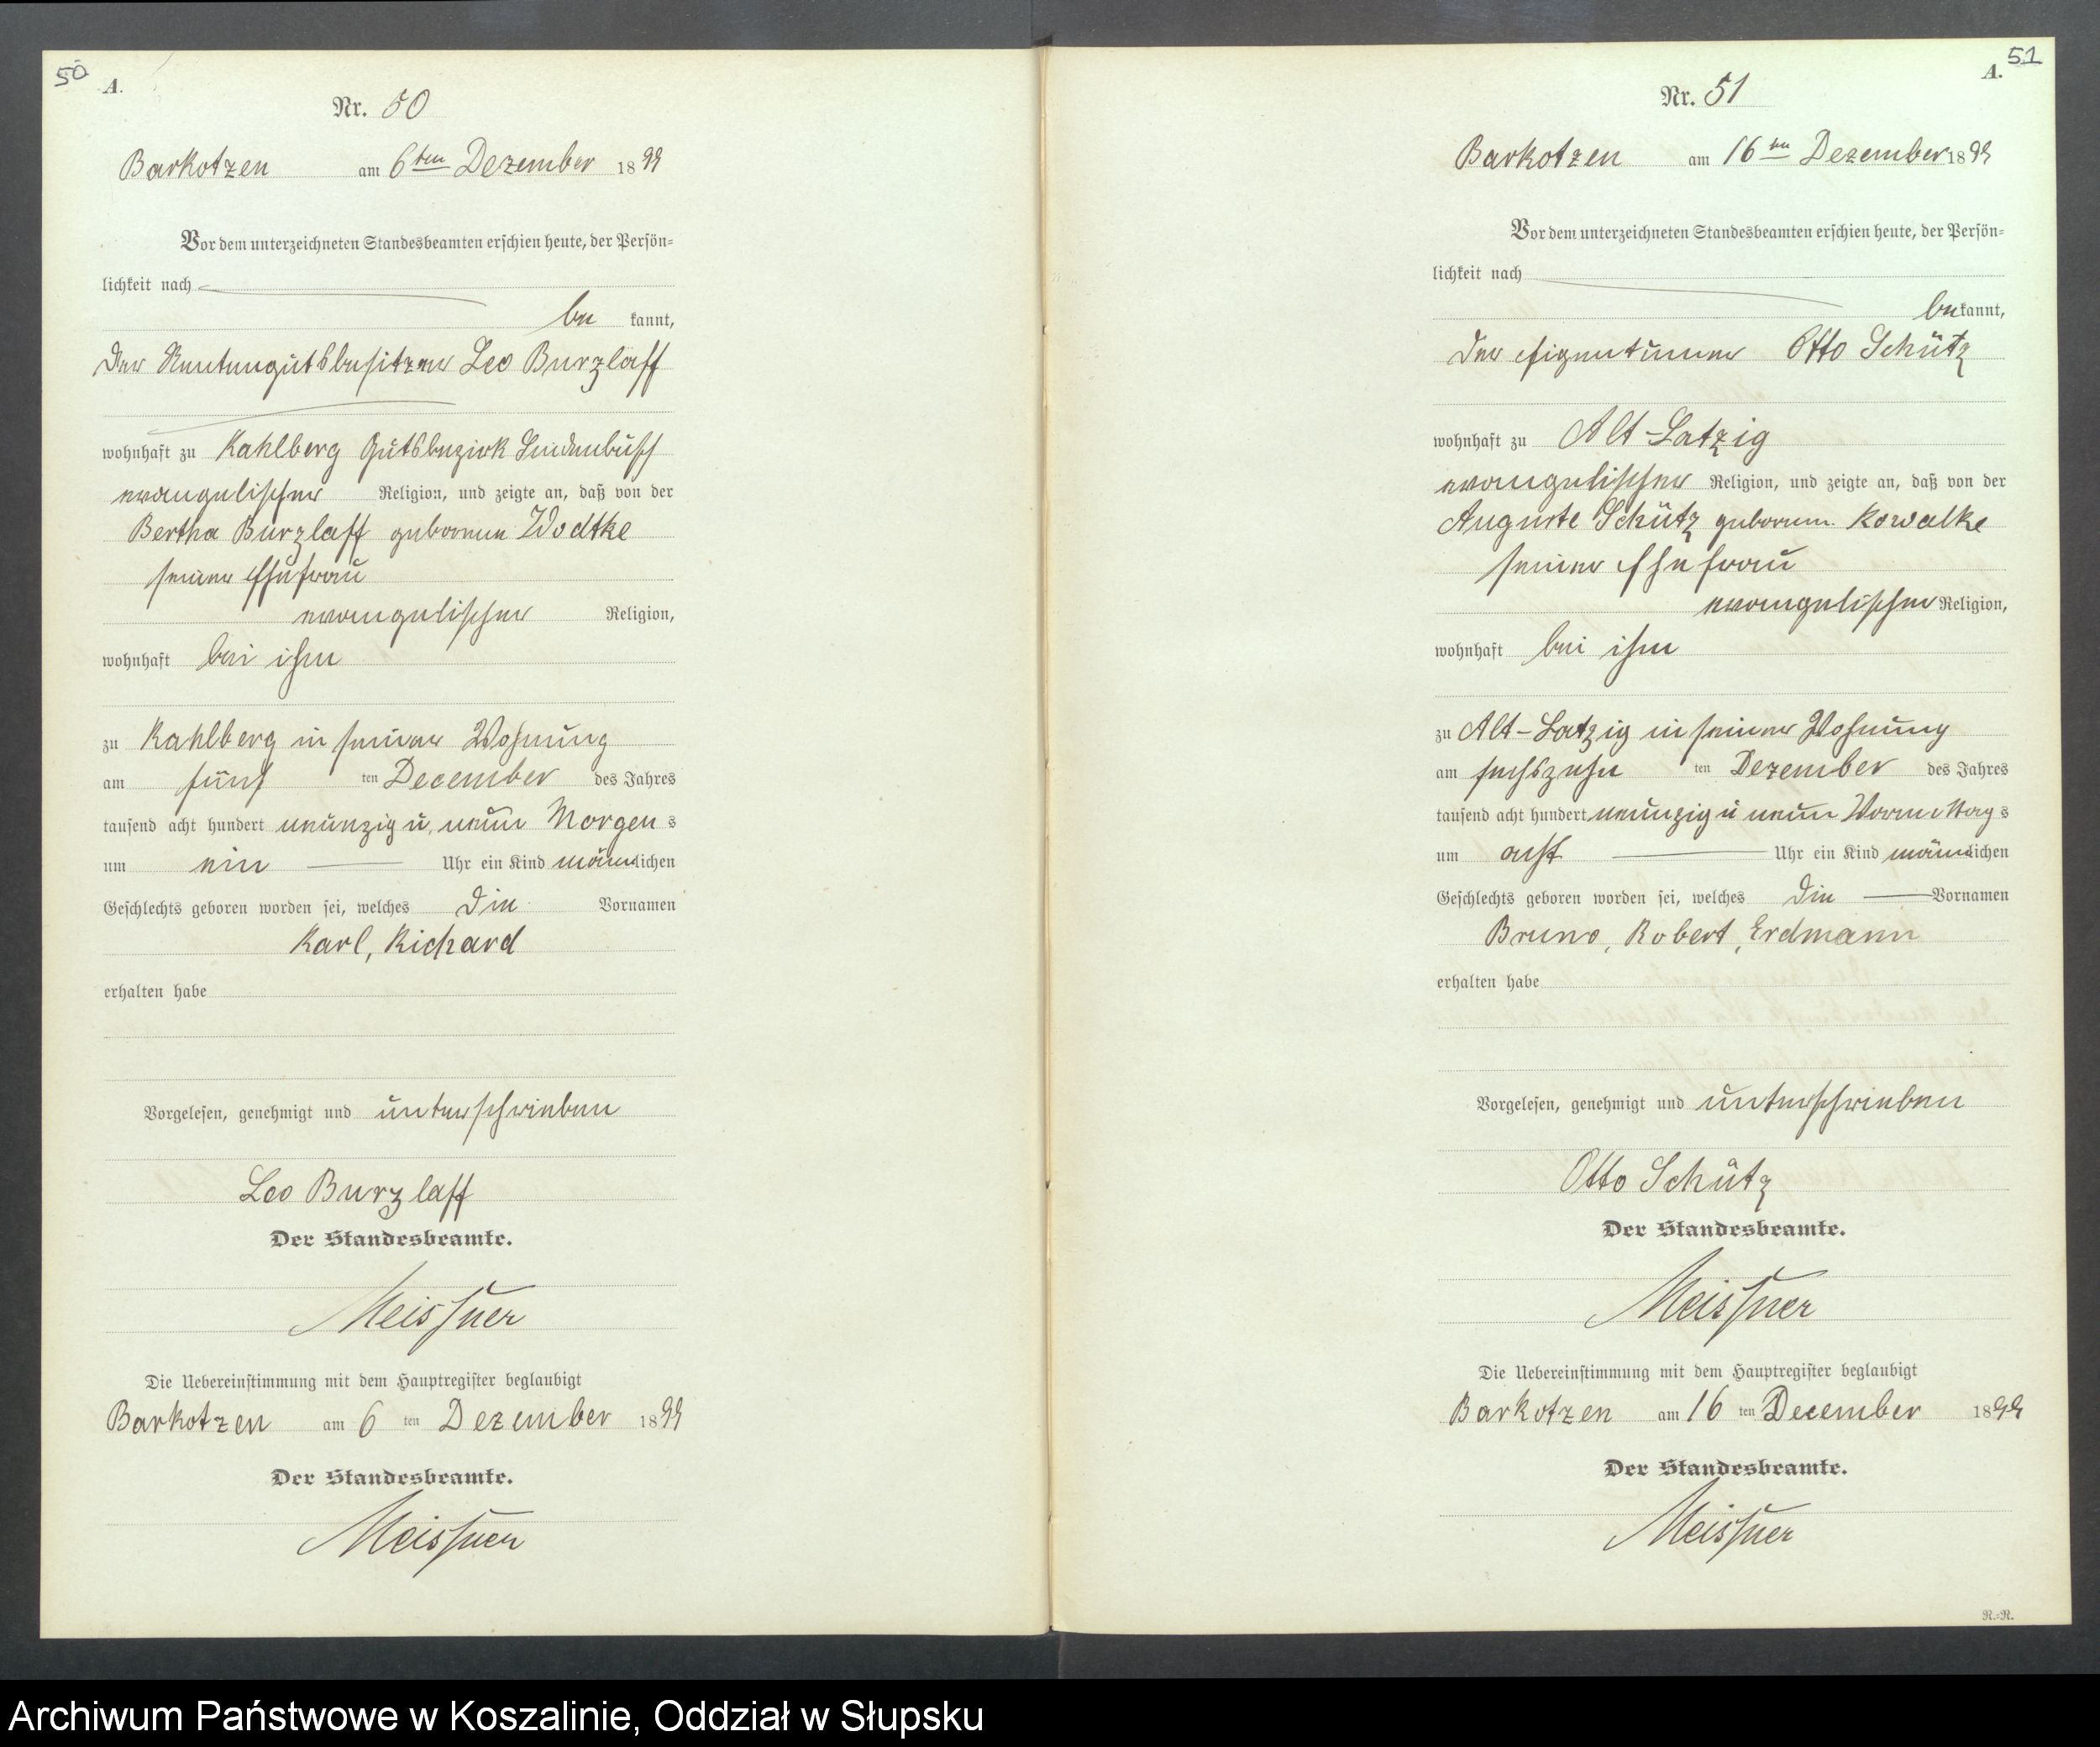 50
A.
Nr. 50
Barkotzen am 6ten Dezember 1899
Vor dem unterzeichneten Standesbeamten erschien heute, der Persön-
lichkeit nach
bekannt,
der Rentengutsbesitzer Leo Burzlaff
wohnhaft zu Kahlberg Gutsbezirk Lindenbusch
evangelischer Religion, und zeigte an, daß von der
Bertha Burzlaff geborenen Wodtke
seiner Ehefrau
evangelischer Religion,
wohnhaft bei ihm
zu Kahlberg in seiner Wohnung
am fünften December des Jahres
tausend acht hundert neunzig u. neun Morgens
um ein Uhr ein Kind männlichen
Geschlechts geboren worden sei, welches die Vornamen
Karl, Richard
erhalten habe
Vorgelesen, genehmigt und unterschrieben
Leo Burzlaff
Der Standesbeamte.
Meissner
Die Uebereinstimmung mit dem Hauptregister beglaubigt
Barkotzen am 6ten Dezember 1899
Der Standesbeamte.
Meissner
51
A.
Nr. 51
Barkotzen am 16ten Dezember 1899
Vor dem unterzeichneten Standesbeamten erschien heute, der Persön-
lichkeit nach
bekannt,
der Eigentümer Otto Schütz
wohnhaft zu Alt-Latzig
evangelischer Religion, und zeigte an, daß von der
Auguste Schütz geboren. Kowalke
seiner Ehefrau
evangelischer Religion,
wohnhaft bei ihm
zu Alt-Latzig in seiner Wohnung
am sechszehnten Dezember des Jahres
tausend acht hundert neunzig u neun Vormittags
um acht Uhr ein Kind männlichen
Geschlechts geboren worden sei, welches die Vornamen
Bruno, Robert, Erdmann
erhalten habe
Vorgelesen, genehmigt und unterschrieben
Otto Schütz
Der Standesbeamte.
Meissner
Die Uebereinstimmung mit dem Hauptregister beglaubigt
Barkotzen am 16ten December 1899
Der Standesbeamte.
Meissner
R.=R.
Archiwum Państwowe w Koszalinie, Oddział w Słupsku